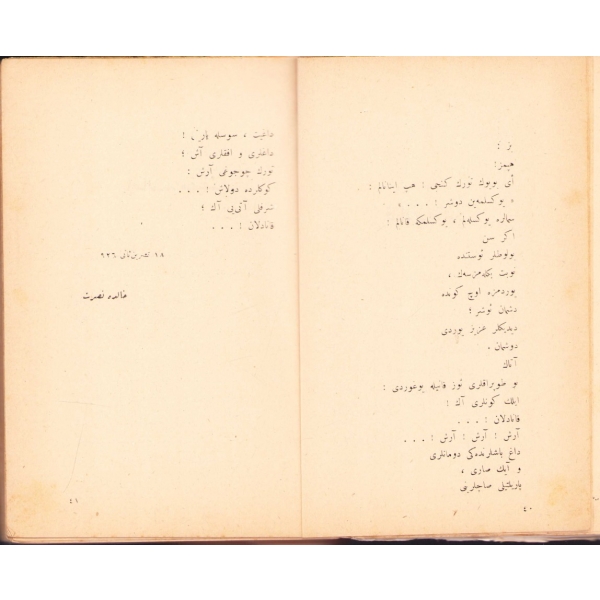 بز :
هپمز :
أی بویوك تورك كنجی : هپ اینانالم :
« یوكسلمه‌ین دوشر : . . . »
سمالره یوكسله‌لم ، یوكسلمكه قانالم :
اكر سن
بولوطلر ئوستنده
نوبت بكله‌مزسه‌ك ،
یوردمزه اوچ كونده
دشمان ئوشر ؛
دیدیكلر عزیز یوردی
دوشمان .
آتاك
بو طوپراقلری ئوز قانیله یوغوردی :
ایلك كونلری آك !
قانادلان : . . .
آرش : آرش : آرش : . . .
داغ باشلرنده‌كی دومانلری
و آیك صاری ،
پاریلتیلی صاچلرینی
٤٠
داغیت ، سوسله
داغلری و افقلری آش ؛
تورك چوجوغی آرش :
كوكلرده دولاش : . . .
شرفلی آتی‌یی آك ؛
قانادلان : . . .
١٨ تشرین ثانی ٩٢٦
خالده نصرت
٤١